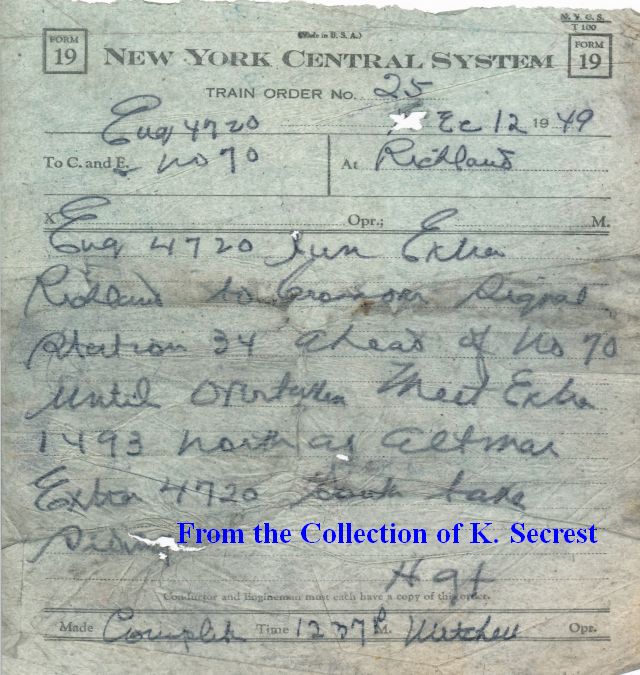 N. Y. C. S.
T 100
(Made in U. S. A.)
FORM 19
NEW YORK CENTRAL SYSTEM
FORM 19
TRAIN ORDER No. 25
Eng 4720
Dec 12 1949
To C. and E. No 70
At Richland
X Opr.; M.
Eng 4720 run Extra
Richland to Signal
Station 34 ahead of No 70
until overtaken Meet Extra
1493 north at Altmar
Extra 4720 south take
Siding
From the Collection of K. Secrest
Conductor and Engineman must each have a copy of this order.
Made Complete Time 1237 P M. Mitchell Opr.